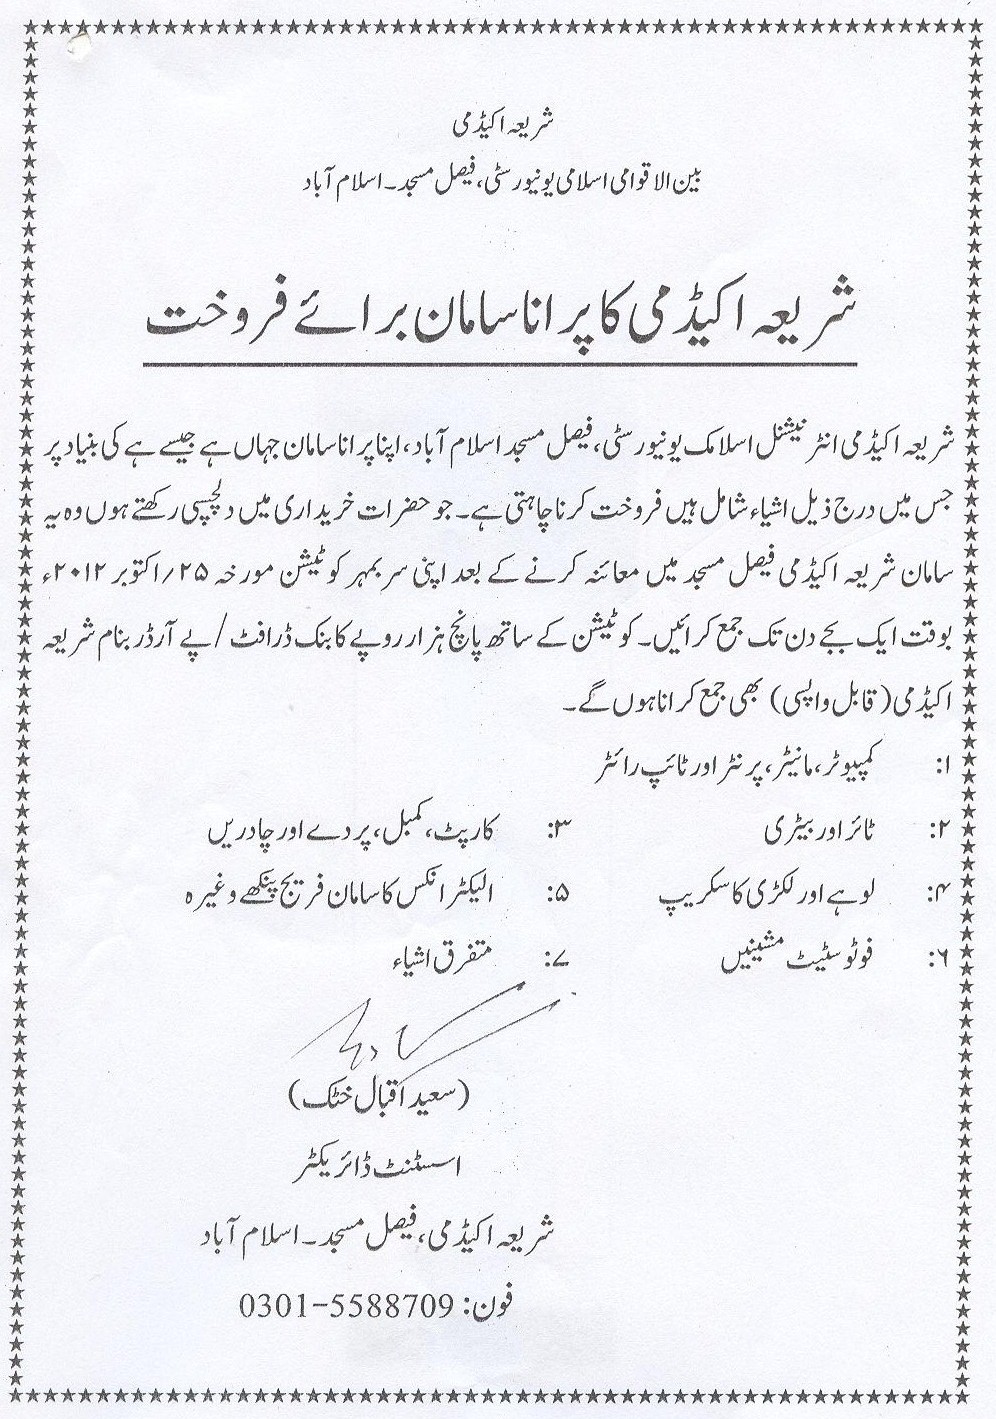 شریعہ اکیڈمی
بین الاقوامی اسلامی یونیورسٹی، فیصل مسجد۔ اسلام آباد
شریعہ اکیڈمی کا پرانا سامان برائے فروخت
شریعہ اکیڈمی انٹرنیشنل اسلامک یونیورسٹی، فیصل مسجد اسلام آباد، اپنا پرانا سامان جہاں ہے جیسے ہے کی بنیاد پر
جس میں درج ذیل اشیاء شامل ہیں فروخت کرنا چاہتی ہے۔ جو حضرات خریداری میں دلچسپی رکھتے ہوں وہ یہ
سامان شریعہ اکیڈمی فیصل مسجد میں معائنہ کرنے کے بعد اپنی سربمہر کوٹیشن مورخہ ۲۵/اکتوبر ۲۰۱۲ء
بوقت ایک بجے دن تک جمع کرائیں۔ کوٹیشن کے ساتھ پانچ ہزار روپے کا بنک ڈرافٹ / پے آرڈر بنام شریعہ
اکیڈمی (قابل واپسی) بھی جمع کرانا ہوں گے۔
۱: کمپیوٹر، مانیٹر، پرنٹر اور ٹائپ رائٹر
۲: ٹائر اور بیٹری ۳: کارپٹ، کمبل، پردے اور چادریں
۴: لوہے اور لکڑی کا سکریپ ۵: الیکٹرانکس کا سامان فریج پنکھے وغیرہ
۶: فوٹو سٹیٹ مشینیں ۷: متفرق اشیاء
(سعید اقبال خٹک)
اسسٹنٹ ڈائریکٹر
شریعہ اکیڈمی، فیصل مسجد۔ اسلام آباد
فون: 0301-5588709